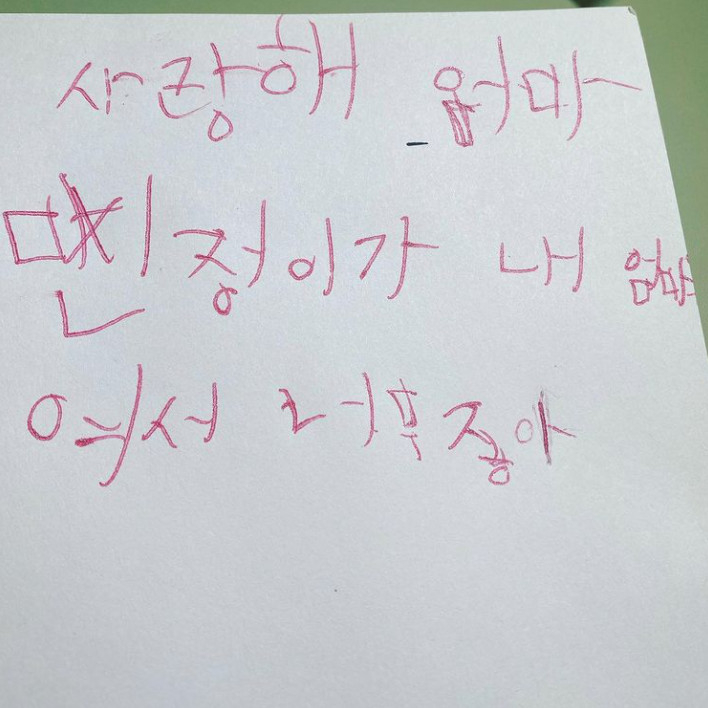 사랑해 엄마
민정이가 내 엄마
여서 너무 종아